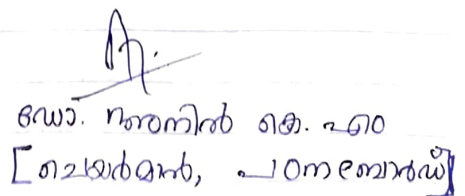 ഡോ. നതാനിൽ കെ. എം
[ചെയർമാൻ, പഠനബോർഡ്]